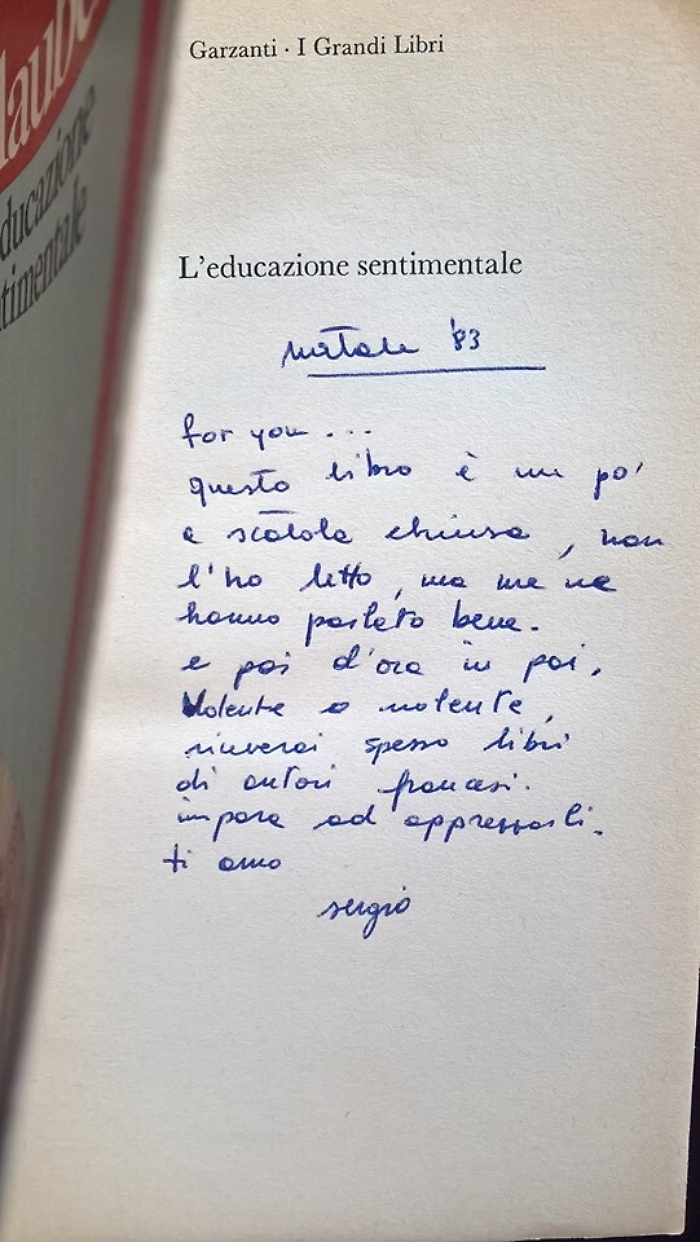 laube
ducazione
timentale
Garzanti · I Grandi Libri
L'educazione sentimentale
natale '83
for you ...
questo libro è un po'
a scatola chiusa, non
l'ho letto, ma me ne
hanno parlato bene.
e poi d'ora in poi,
Volente o nolente,
riceverai spesso libri
di autori francesi.
impara ad apprezzarli.
ti amo
sergio